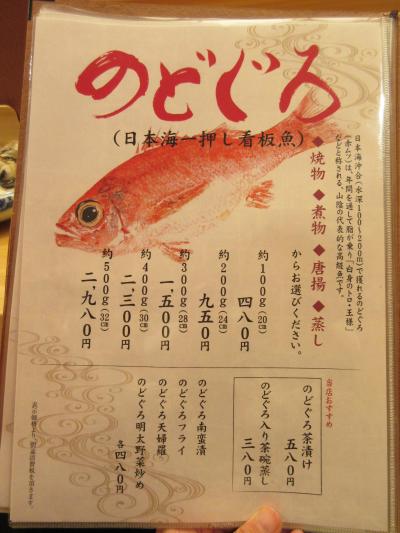 のどぐろ
(日本海一押し看板魚)
日本海沖合(水深100~200m)で獲れるのどぐろ
(赤ムツ)は、年間を通して脂が乗り「白身のトロ」「王様」
などと称される、山陰の代表的な高級魚です。
◆焼物◆煮物◆唐揚◆蒸し
からお選びください。
約100g(20㎝)
四八〇円
約200g(24㎝)
九五〇円
約300g(28㎝)
一、五〇〇円
約400g(30㎝)
二、三〇〇円
約500g(32㎝)
二、九八〇円
当店おすすめ
のどぐろ茶漬け
五八〇円
のどぐろ入り茶碗蒸し
三八〇円
のどぐろ南蛮漬
のどぐろフライ
のどぐろ天婦羅
のどぐろ明太野菜炒め
各四八〇円
表示価格より、別途消費税を頂きます。